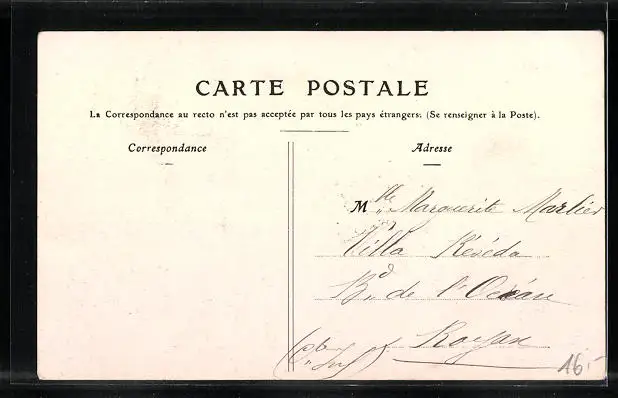 CARTE POSTALE
La Correspondance au recto n'est pas acceptée par tous les pays étrangers. (Se renseigner à la Poste).
Correspondance
Adresse
Mlle Marguerite Marlier
Villa Réséda
Bd de l'Océan
Royan
16.-